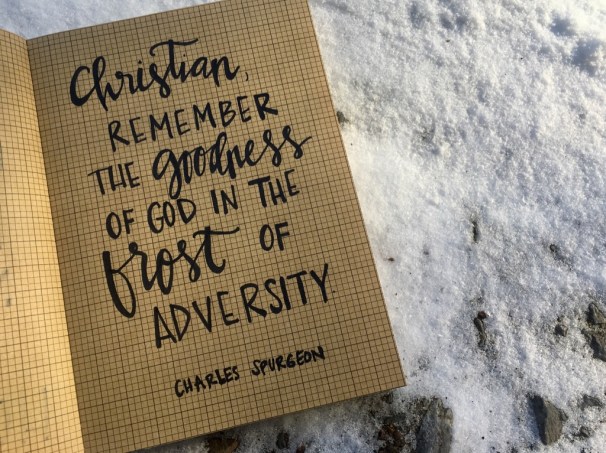 Christian,
REMEMBER
THE goodness
OF GOD IN THE
frost OF
ADVERSITY
CHARLES SPURGEON